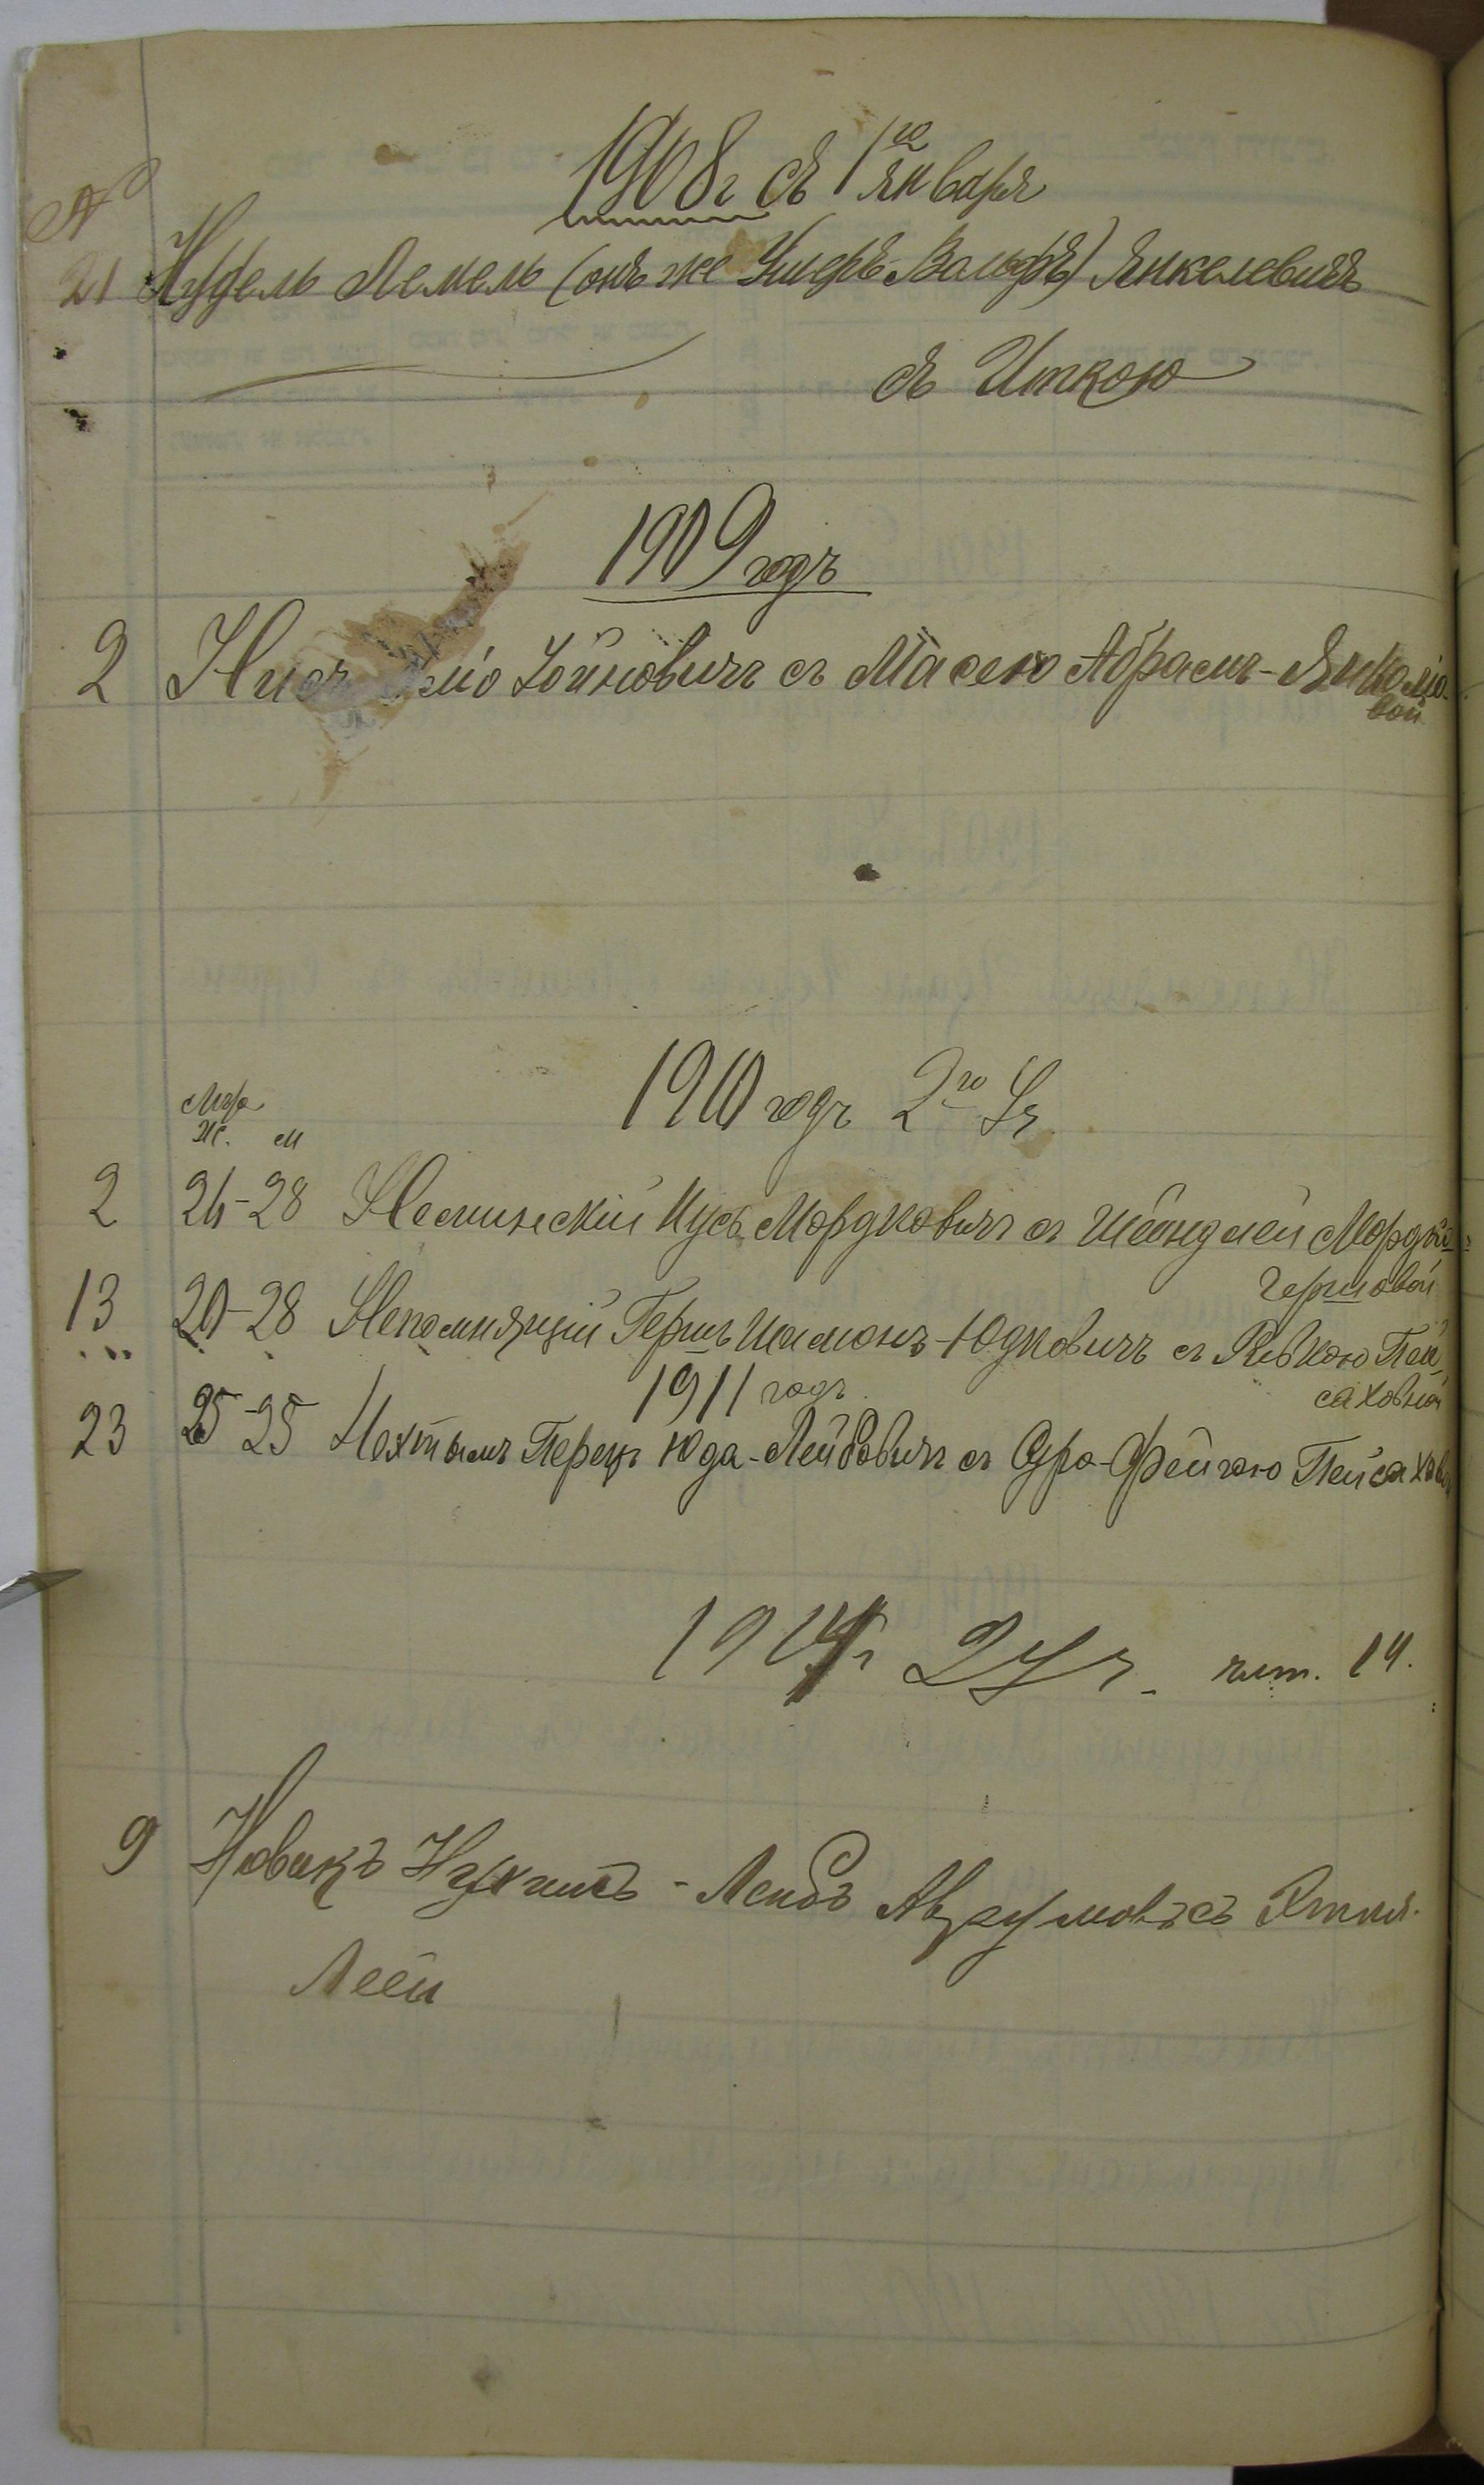 1908 г съ 1го января
№
21 Нудель Лемель (онъ же Ушеръ-Вольфъ) Янкелевичъ
съ Иткою
1909 годъ
2 Зойновичъ съ Масею Абрамъ-Янкелю-
вой
1910 годъ 2го Уч
Ж. м
2 24-28 Неминскій Кусь Мордковичъ съ Шейндлей Мордко-
Гершовой
13 20-28 Непомнящій Гершъ Шимонъ-Юдковичъ съ Ривкою Пей
саховной
1911 годъ
23 25-25 Нехтымъ Перецъ Юда-Лейбовичъ съ Сура-Фейгою Пейсахов
1914 г 2 Уч. 14.
9 Новакъ Нухимъ-Лейбъ Аврумовъ съ
Леей